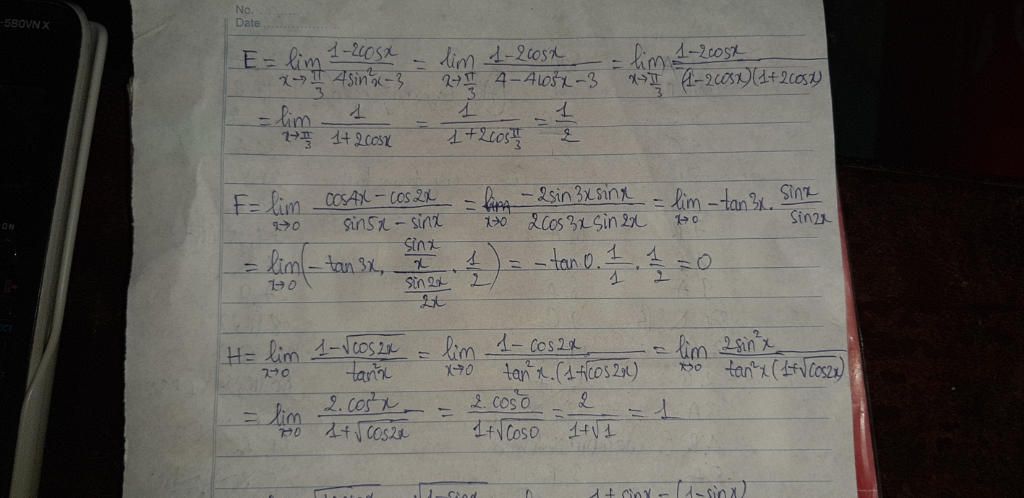 -580VN X
No.
Date
E = lim x→π/3 (1-2cosx)/(4sin²x-3) = lim x→π/3 (1-2cosx)/(4-4cos²x-3) = lim x→π/3 (1-2cosx)/((1-2cosx)(1+2cosx))
= lim x→π/3 1/(1+2cosx) = 1/(1+2cos π/3) = 1/2
F = lim x→0 (cos4x-cos2x)/(sin5x-sinx) = lim x→0 (-2sin3xsinx)/(2cos3xsin2x) = lim x→0 -tan3x. sinx/sin2x
= lim x→0 (-tan3x. (sinx/x)/(sin2x/2x) . 1/2) = -tan0. 1/1 . 1/2 = 0
H = lim x→0 (1-√cos2x)/tan²x = lim x→0 (1-cos2x)/(tan²x.(1+√cos2x)) = lim x→0 2sin²x/(tan²x(1+√cos2x))
= lim x→0 2.cos²x/(1+√cos2x) = 2.cos²0/(1+√cos0) = 2/(1+√1) = 1
1+sinx-(1-sinx)